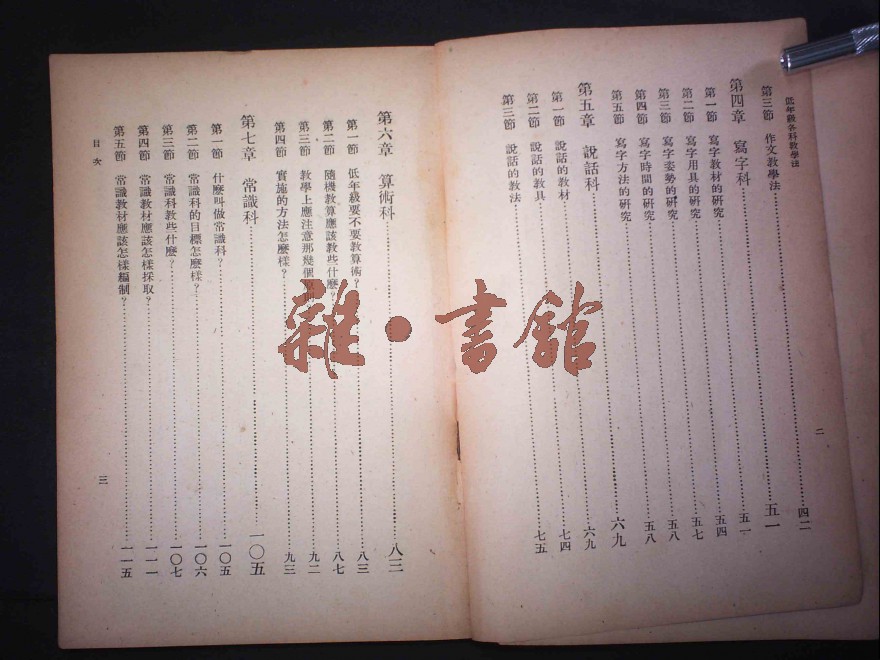 低年級各科教學法
二
第三節 作文教學法……四二
第四章 寫字科……五一
第一節 寫字教材的研究……五一
第二節 寫字用具的研究……五四
第三節 寫字姿勢的研究……五七
第四節 寫字時間的研究……五八
第五節 寫字方法的研究……五八
第五章 說話科……六九
第一節 說話的教材……六九
第二節 說話的教具……七四
第三節 說話的教法……七五
第六章 算術科……八三
第一節 低年級要不要教算術？……八三
第二節 隨機教算應該教些什麼？……八七
第三節 教學上應注意那幾個……九二
第四節 實施的方法怎麼樣？……九三
第七章 常識科……一〇五
第一節 什麼叫做常識科？……一〇五
第二節 常識科的目標怎麼樣？……一〇六
第三節 常識科教些什麼？……一〇七
第四節 常識教材應該怎樣採取？……一一一
第五節 常識教材應該怎樣編制？……一一五
目次
三
雜·書館